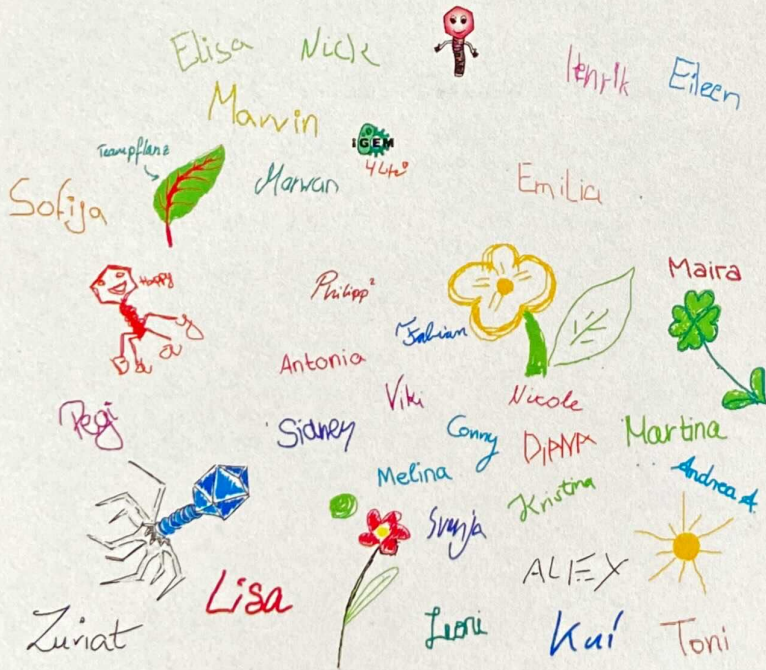 Elisa
Nick
Henrik
Eileen
Marvin
iGEM
4 Life
Teampflanz
Marwan
Emilia
Sofija
Maira
Happy
Philipp²
Fabian
Antonia
Viki
Nicole
Pegi
Sidney
Conny
DIANA
Martina
Melina
Andrea A.
Kristina
Svenja
ALEX
Lisa
Zuriat
Leoni
Kai
Toni